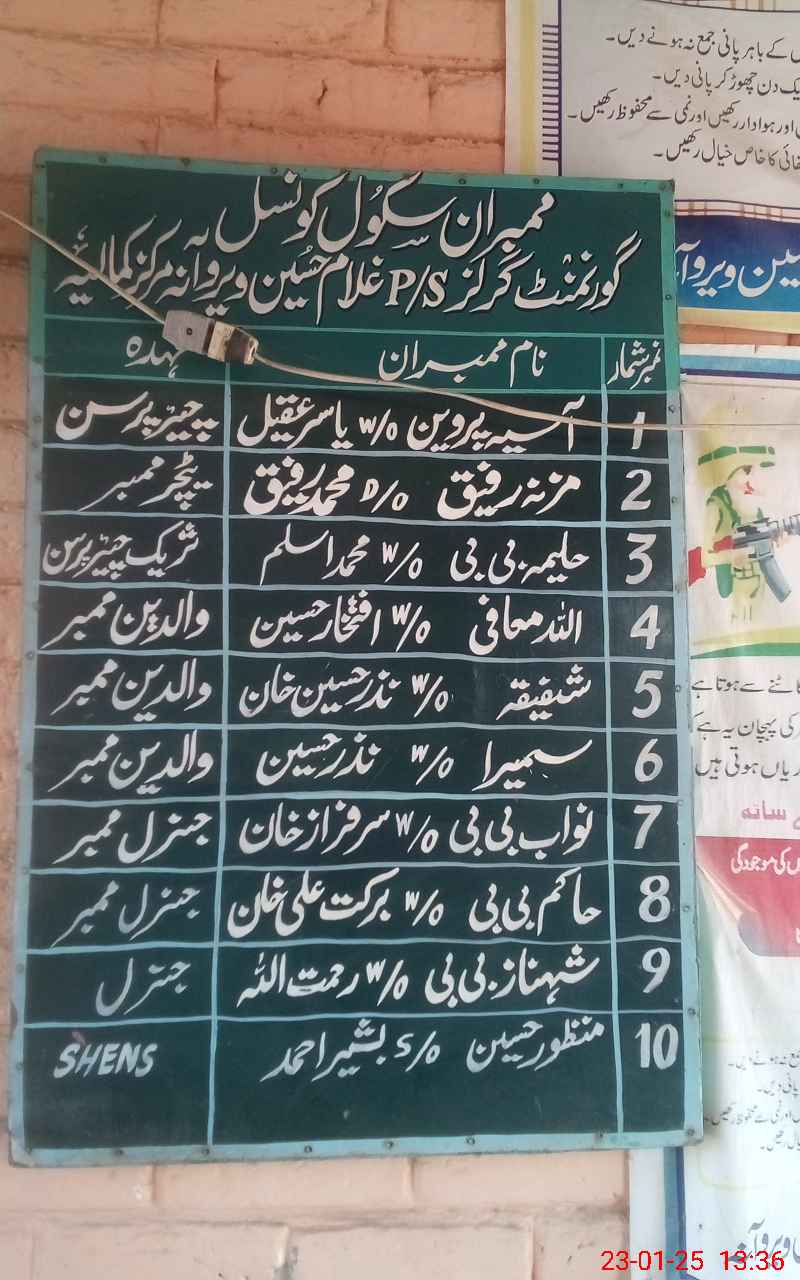 ممبران سکول کونسل
گورنمنٹ گرلز P/S غلام حسین ویروآنہ مرکز کمالیہ
نمبر شمار نام ممبران عہدہ
1 آسیہ پروین W/o یاسر عقیل چیئر پرسن
2 مزنہ رفیق D/o محمد رفیق ٹیچر ممبر
3 حلیمہ بی بی W/o محمد اسلم شریک چیئر پرسن
4 اللہ معافی W/o افتخار حسین والدین ممبر
5 شفیقہ W/o نذر حسین خان والدین ممبر
6 سمیرا W/o نذر حسین والدین ممبر
7 نواب بی بی W/o سرفراز خان جنرل ممبر
8 حاکم بی بی W/o برکت علی خان جنرل ممبر
9 شہناز بی بی W/o رحمت اللہ جنرل
10 منظور حسین S/o بشیر احمد SHENS
کے باہر پانی جمع نہ ہونے دیں۔
یک دن چھوڑ کر پانی دیں۔
اور ہوادار رکھیں اور نمی سے محفوظ رکھیں۔
صفائی کا خاص خیال رکھیں۔
حسین ویروآ
کاٹنے سے ہوتا ہے
کی پہچان یہ ہے کہ
ریاں ہوتی ہیں
کے ساتھ
کی موجودگی
23-01-25 13:36